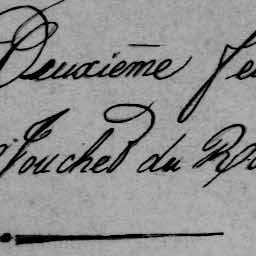 Deuxième fe
Touches du R